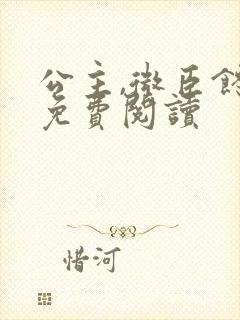 公主,微臣
免費閱讀
惜河